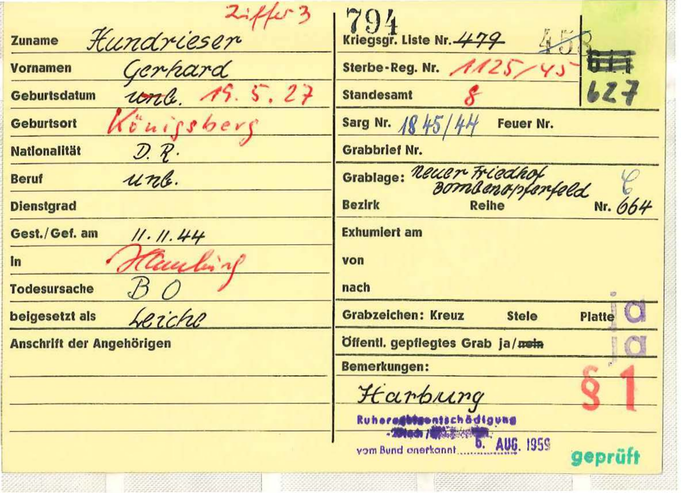 Ziffer 3
Zuname Hundrieser
Vornamen Gerhard
Geburtsdatum unb. 19.5.27
Geburtsort Königsberg
Nationalität D.R.
Beruf unb.
Dienstgrad
Gest./Gef. am 11.11.44
In Hamburg
Todesursache B O
beigesetzt als Leiche
Anschrift der Angehörigen
794
Kriegsgr. Liste Nr. 479 458
Sterbe-Reg. Nr. 1125/45 611
627
Standesamt 8
Sarg Nr. 1845/44 Feuer Nr.
Grabbrief Nr.
Grablage: Neuer Friedhof
Bombenopferfeld C
Bezirk Reihe Nr. 664
Exhumiert am
von
nach
Grabzeichen: Kreuz Stele Platte ja
Öffentl. gepflegtes Grab ja/nein ja
Bemerkungen:
Harburg § 1
Ruherechtsentschädigung
vom Bund anerkannt 6. AUG. 1959
geprüft